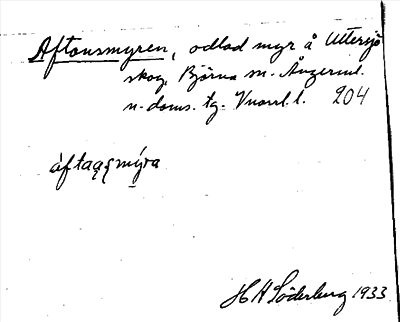 Aftonsmyren, odlad myr å Uttersjö
skog, Björna sn. Ångerml.
n. doms. tg. Vnorrl. l. 204
àftaṇṣmýra
H H Söderberg 1933